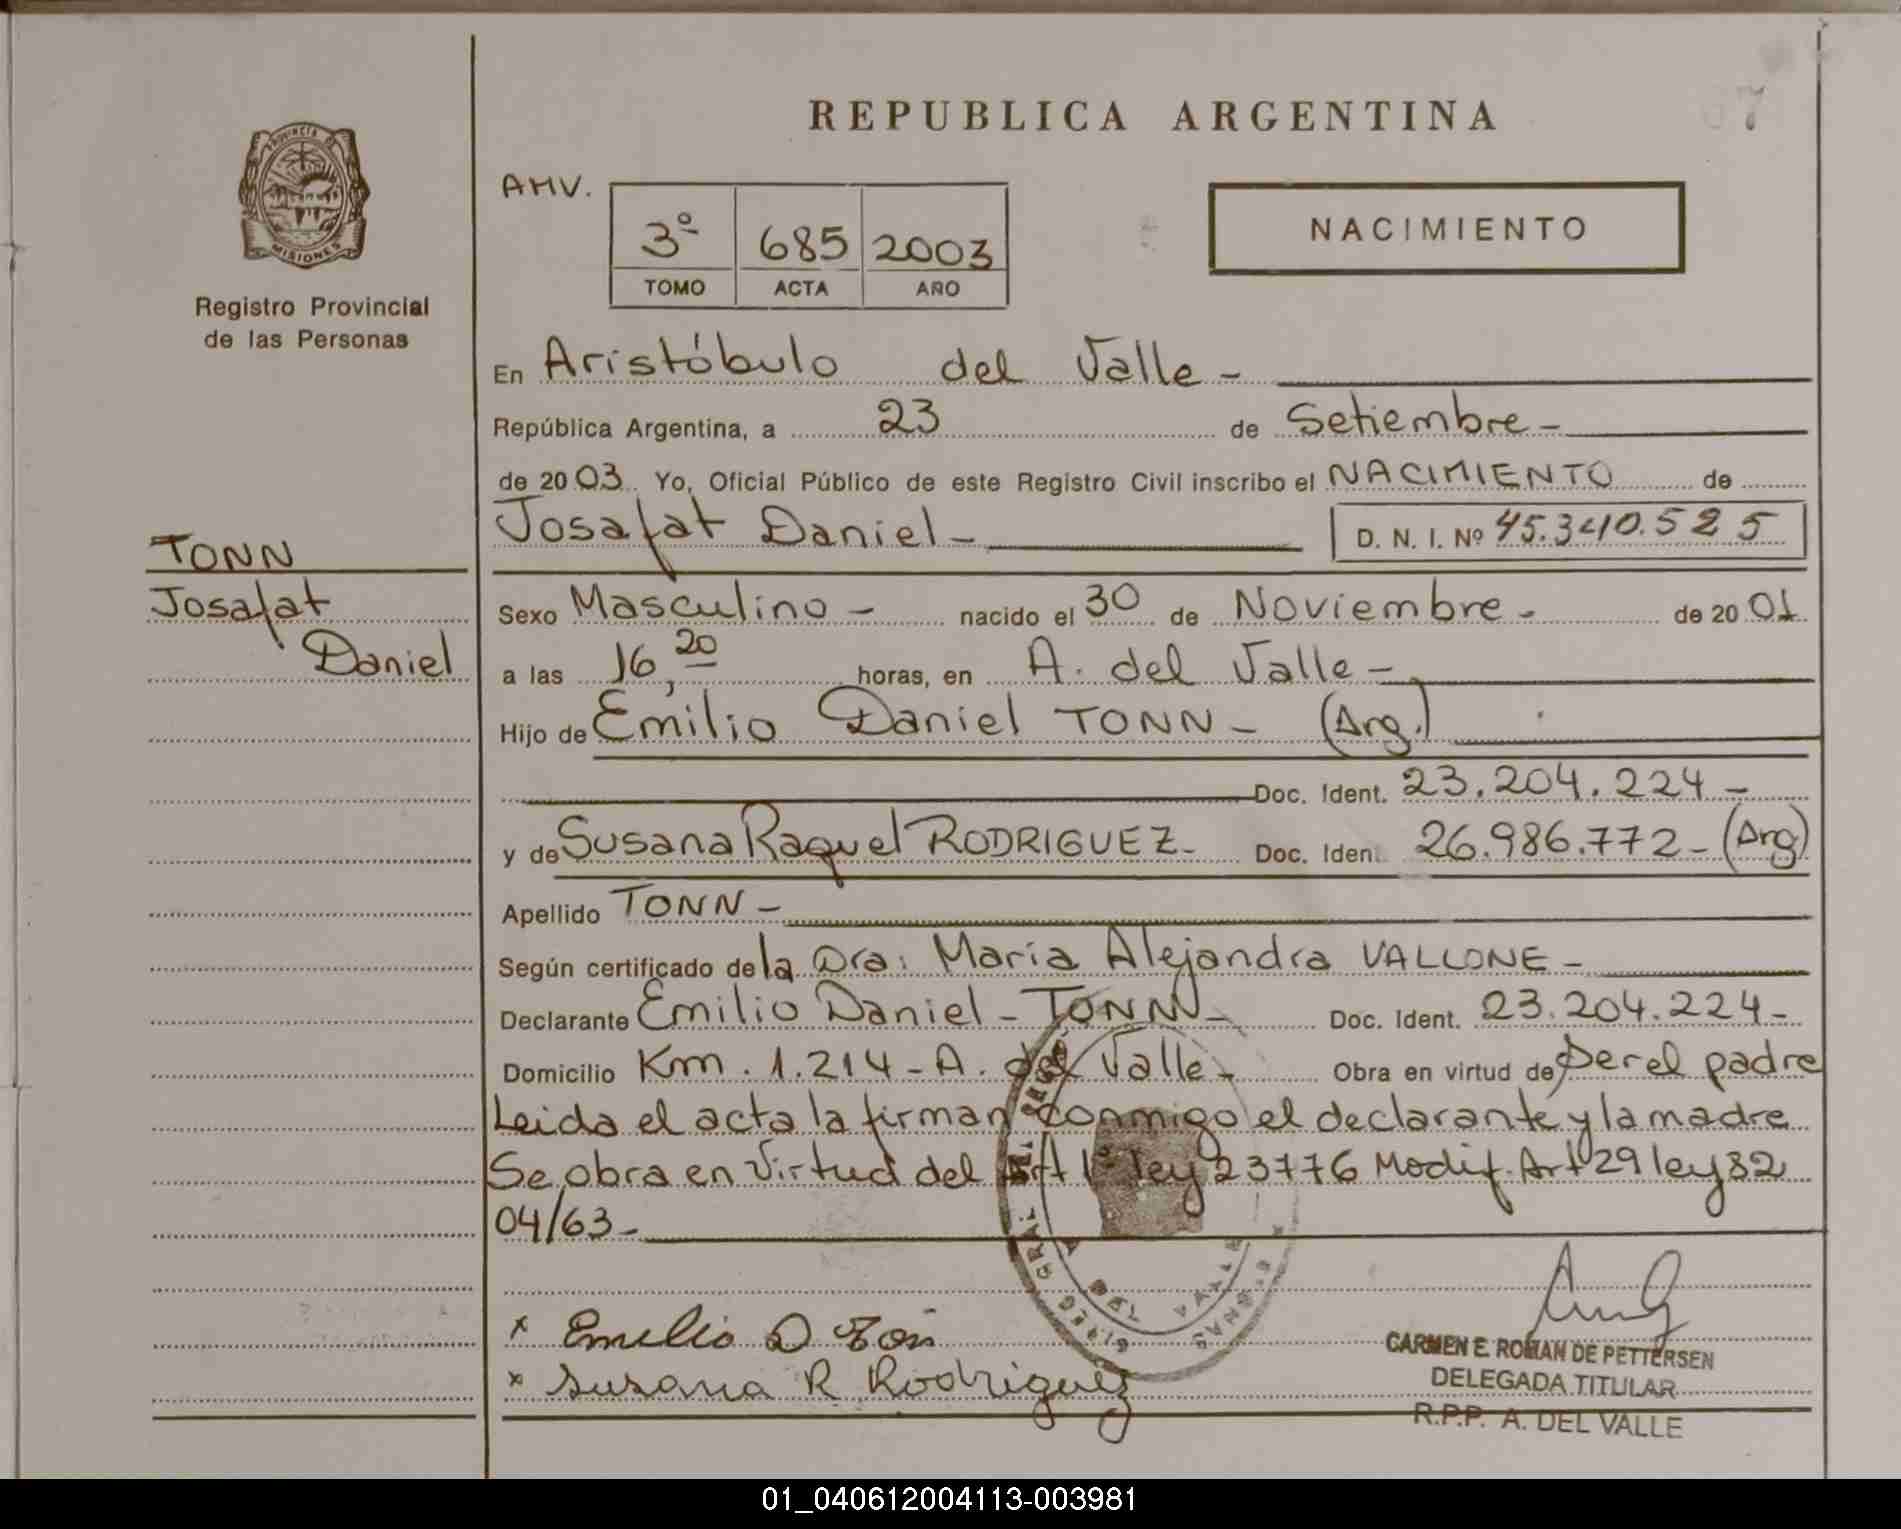 REPUBLICA ARGENTINA
67
PROVINCIA DE
MISIONES
Registro Provincial
de las Personas
AMV.
3º 685 2003
TOMO ACTA AÑO
NACIMIENTO
En Aristóbulo del Valle -
República Argentina, a 23 de Setiembre -
de 2003. Yo, Oficial Público de este Registro Civil inscribo el NACIMIENTO de
Josafat Daniel - D. N. I. Nº 45.340.525
TONN
Josafat
Daniel
Sexo Masculino - nacido el 30 de Noviembre - de 2001
a las 16,20 horas, en A. del Valle -
Hijo de Emilio Daniel TONN - (Arg.)
Doc. Ident. 23.204.224 -
y de Susana Raquel RODRIGUEZ - Doc. Iden. 26.986.772 - (Arg)
Apellido TONN -
Según certificado de la Dra: Maria Alejandra VALLONE -
Declarante Emilio Daniel - TONN - Doc. Ident. 23.204.224 -
Domicilio Km. 1.214 - A. del Valle - Obra en virtud de Ser el padre
Leida el acta la firman conmigo el declarante y la madre
Se obra en Virtud del Art 1º ley 23776 Modif. Art 29 ley 82
04/63 -
x Emilio D Ton
x Susana R Rodriguez
CARMEN E. ROMAN DE PETTERSEN
DELEGADA TITULAR
R.P.P. A. DEL VALLE
01_040612004113-003981